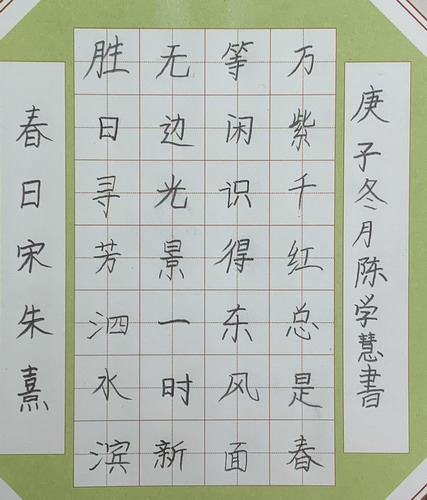 春日宋朱熹
胜日寻芳泗水滨
无边光景一时新
等闲识得东风面
万紫千红总是春
庚子冬月陈学慧書